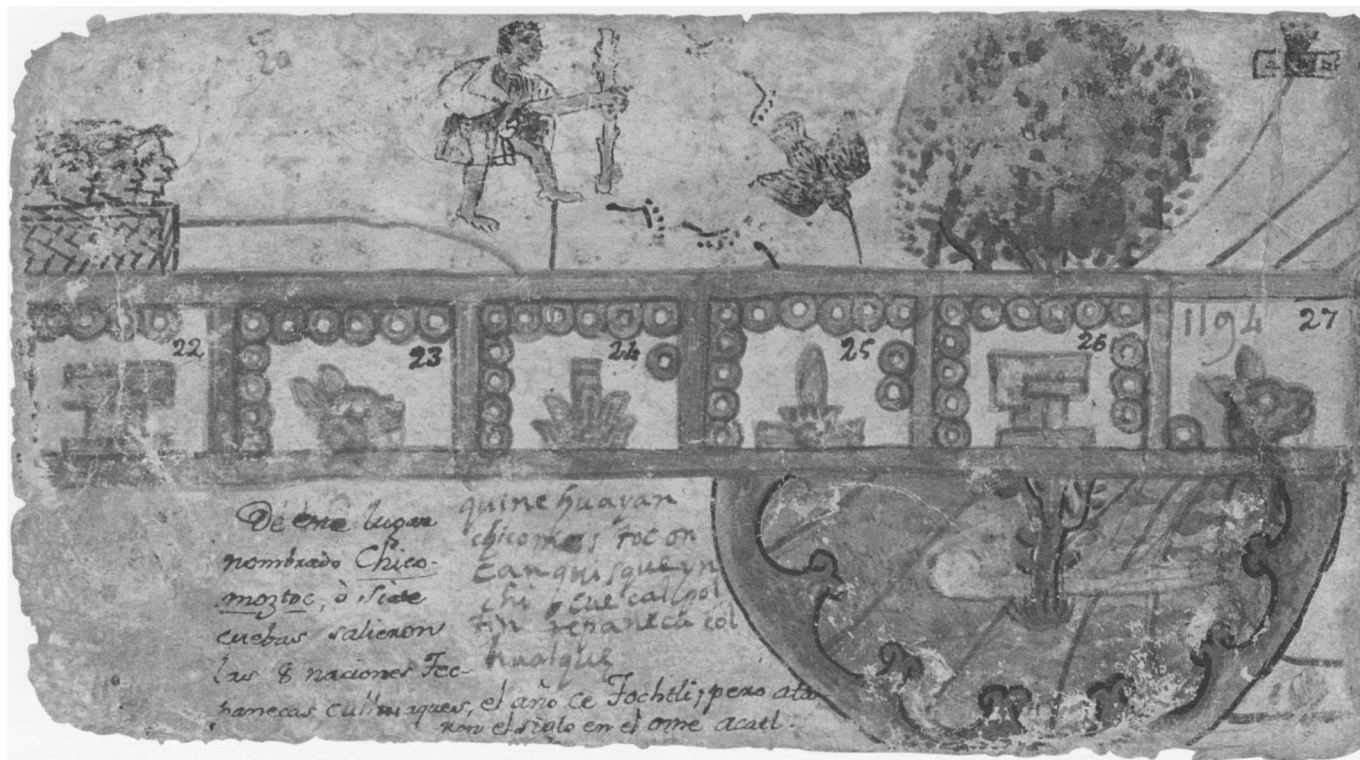 22
23
24
25
26
1194
27
De este lugar
nombrado Chico-
moztoc, ò siete
cuebas salieron
las 8 naciones Tec-
panecas culhuaques, el año ce Tochtli, pero ata-
ron el siglo en el ome acatl.
quinehuayan
chicomos toc on
can quisque yn
chi cue calpol
tin tepaneca col
huaque